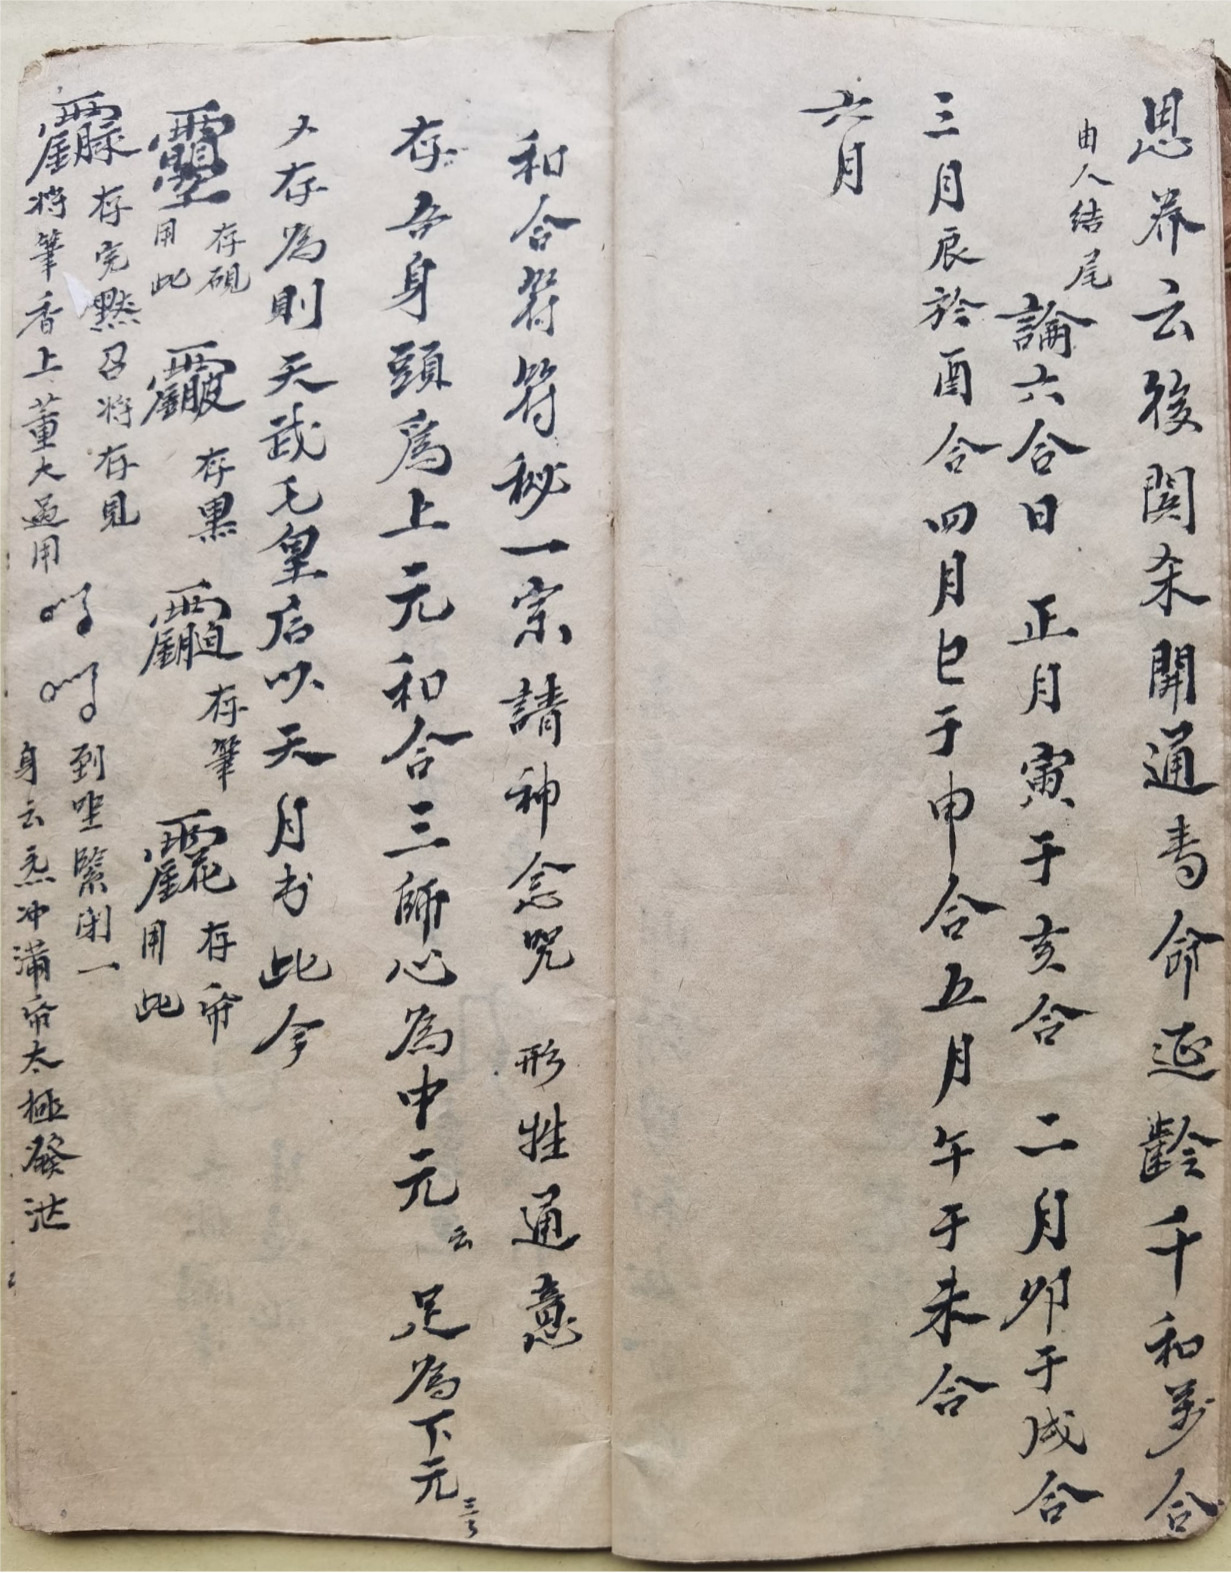 恩养云後関杀開通壽命延齡千和萬合
由人结尾
論六合日 正月寅于亥合 二月卯于戌合
三月辰於酉合四月巳于申合五月午于未合
六月
和合符符秘一宗請神念咒 形牲通意
存吾身頭爲上元和合三師心為中元云足為下元
又存為則天武毛皇后以天月书此令
存硯
用此
存墨
存筆
存帋
用此
存完黙召将存見
将筆香上董大過用
到坐緊闭一
身云炁冲滿帋太極發泄